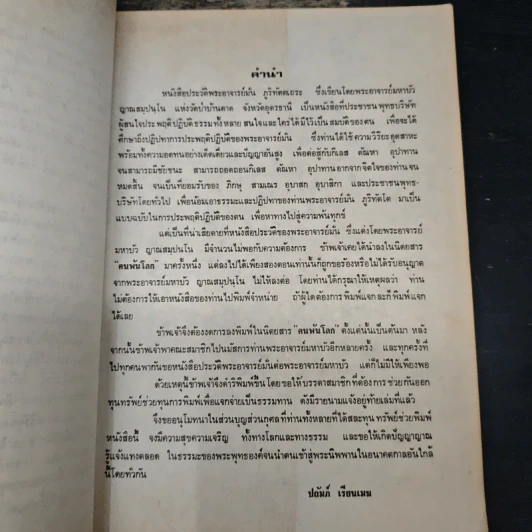 คำนำ
หนังสือประวัติพระอาจารย์มั่น ภูริทัตตเถระ ซึ่งเขียนโดยพระอาจารย์มหาบัว
ญาณสมฺปนฺโน แห่งวัดป่าบ้านตาด จังหวัดอุดรธานี เป็นหนังสือที่ประชาชนพุทธบริษัท
ผู้สนใจประพฤติปฏิบัติธรรมทั้งหลาย สนใจและใคร่ได้มีไว้เป็นสมบัติของตน เพื่อจะได้
ศึกษาถึงปฏิปทาการประพฤติปฏิบัติของพระอาจารย์มั่น ซึ่งท่านได้ใช้ความวิริยะอุตสาหะ
พร้อมทั้งความอดทนอย่างเด็ดเดี่ยวและปัญญาอันสูง เพื่อต่อสู้กับกิเลส ตัณหา อุปาทาน
จนสามารถมีชัยชนะ สามารถถอดถอนกิเลส ตัณหา อุปาทานออกจากจิตใจของท่านจน
หมดสิ้น จนเป็นที่ยอมรับของ ภิกษุ สามเณร อุบาสก อุบาสิกา และประชาชนพุทธ-
บริษัทโดยทั่วไป เพื่อน้อมเอาธรรมะและปฏิปทาของท่านพระอาจารย์มั่น ภูริทัตโต มาเป็น
แบบฉบับในการประพฤติปฏิบัติของตน เพื่อหาทางไปสู่ความพ้นทุกข์
แต่เป็นที่น่าเสียดายที่หนังสือประวัติของพระอาจารย์มั่น ซึ่งแต่งโดยพระอาจารย์
มหาบัว ญาณสมฺปนฺโน มีจำนวนไม่พอกับความต้องการ ข้าพเจ้าเคยได้นำลงในนิตยสาร
"คนพ้นโลก" มาครั้งหนึ่ง แต่ลงไปได้เพียงสองตอนเท่านั้นก็ถูกขอร้องหรือไม่ได้รับอนุญาต
จากพระอาจารย์มหาบัว ญาณสมฺปนฺโน ไม่ให้ลงต่อ โดยท่านได้กรุณาให้เหตุผลว่า ท่าน
ไม่ต้องการให้เอาหนังสือของท่านไปพิมพ์จำหน่าย ถ้าผู้ใดต้องการพิมพ์แจกละก็พิมพ์แจก
ได้เลย
ข้าพเจ้าจึงต้องงดการลงพิมพ์ในนิตยสาร "คนพ้นโลก" ตั้งแต่นั้นเป็นต้นมา หลัง
จากนั้นข้าพเจ้าพาคณะสมาชิกไปนมัสการท่านพระอาจารย์มหาบัวอีกหลายครั้ง และทุกครั้งที่
ไปทุกคนพากันขอหนังสือประวัติพระอาจารย์มั่นต่อพระอาจารย์มหาบัว แต่ก็ไม่มีให้เพียงพอ
ด้วยเหตุนี้ข้าพเจ้าจึงดำริพิมพ์ขึ้นโดยขอให้บรรดาสมาชิกที่ต้องการช่วยกันออก
ทุนทรัพย์ช่วยทุนการพิมพ์เพื่อแจกจ่ายเป็นธรรมทาน ดังมีรายนามแจ้งอยู่ท้ายเล่มที่แล้ว
จึงขออนุโมทนาในส่วนบุญส่วนกุศลที่ท่านทั้งหลายที่ได้สละทุนทรัพย์ช่วยพิมพ์
หนังสือนี้ จงมีความสุขความเจริญ ทั้งทางโลกและทางธรรม และขอให้เกิดปัญญาญาณ
รู้แจ้งแทงตลอด ในธรรมะของพระพุทธองค์จนนำตนเข้าสู่พระนิพพานในอนาคตกาลอันใกล้
นี้โดยทั่วกัน
ปถัมภ์ เรียนเมฆ